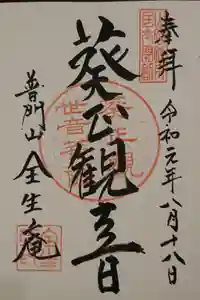 奉拝
令和元年八月十八日
葵正観音
普門山 全生庵